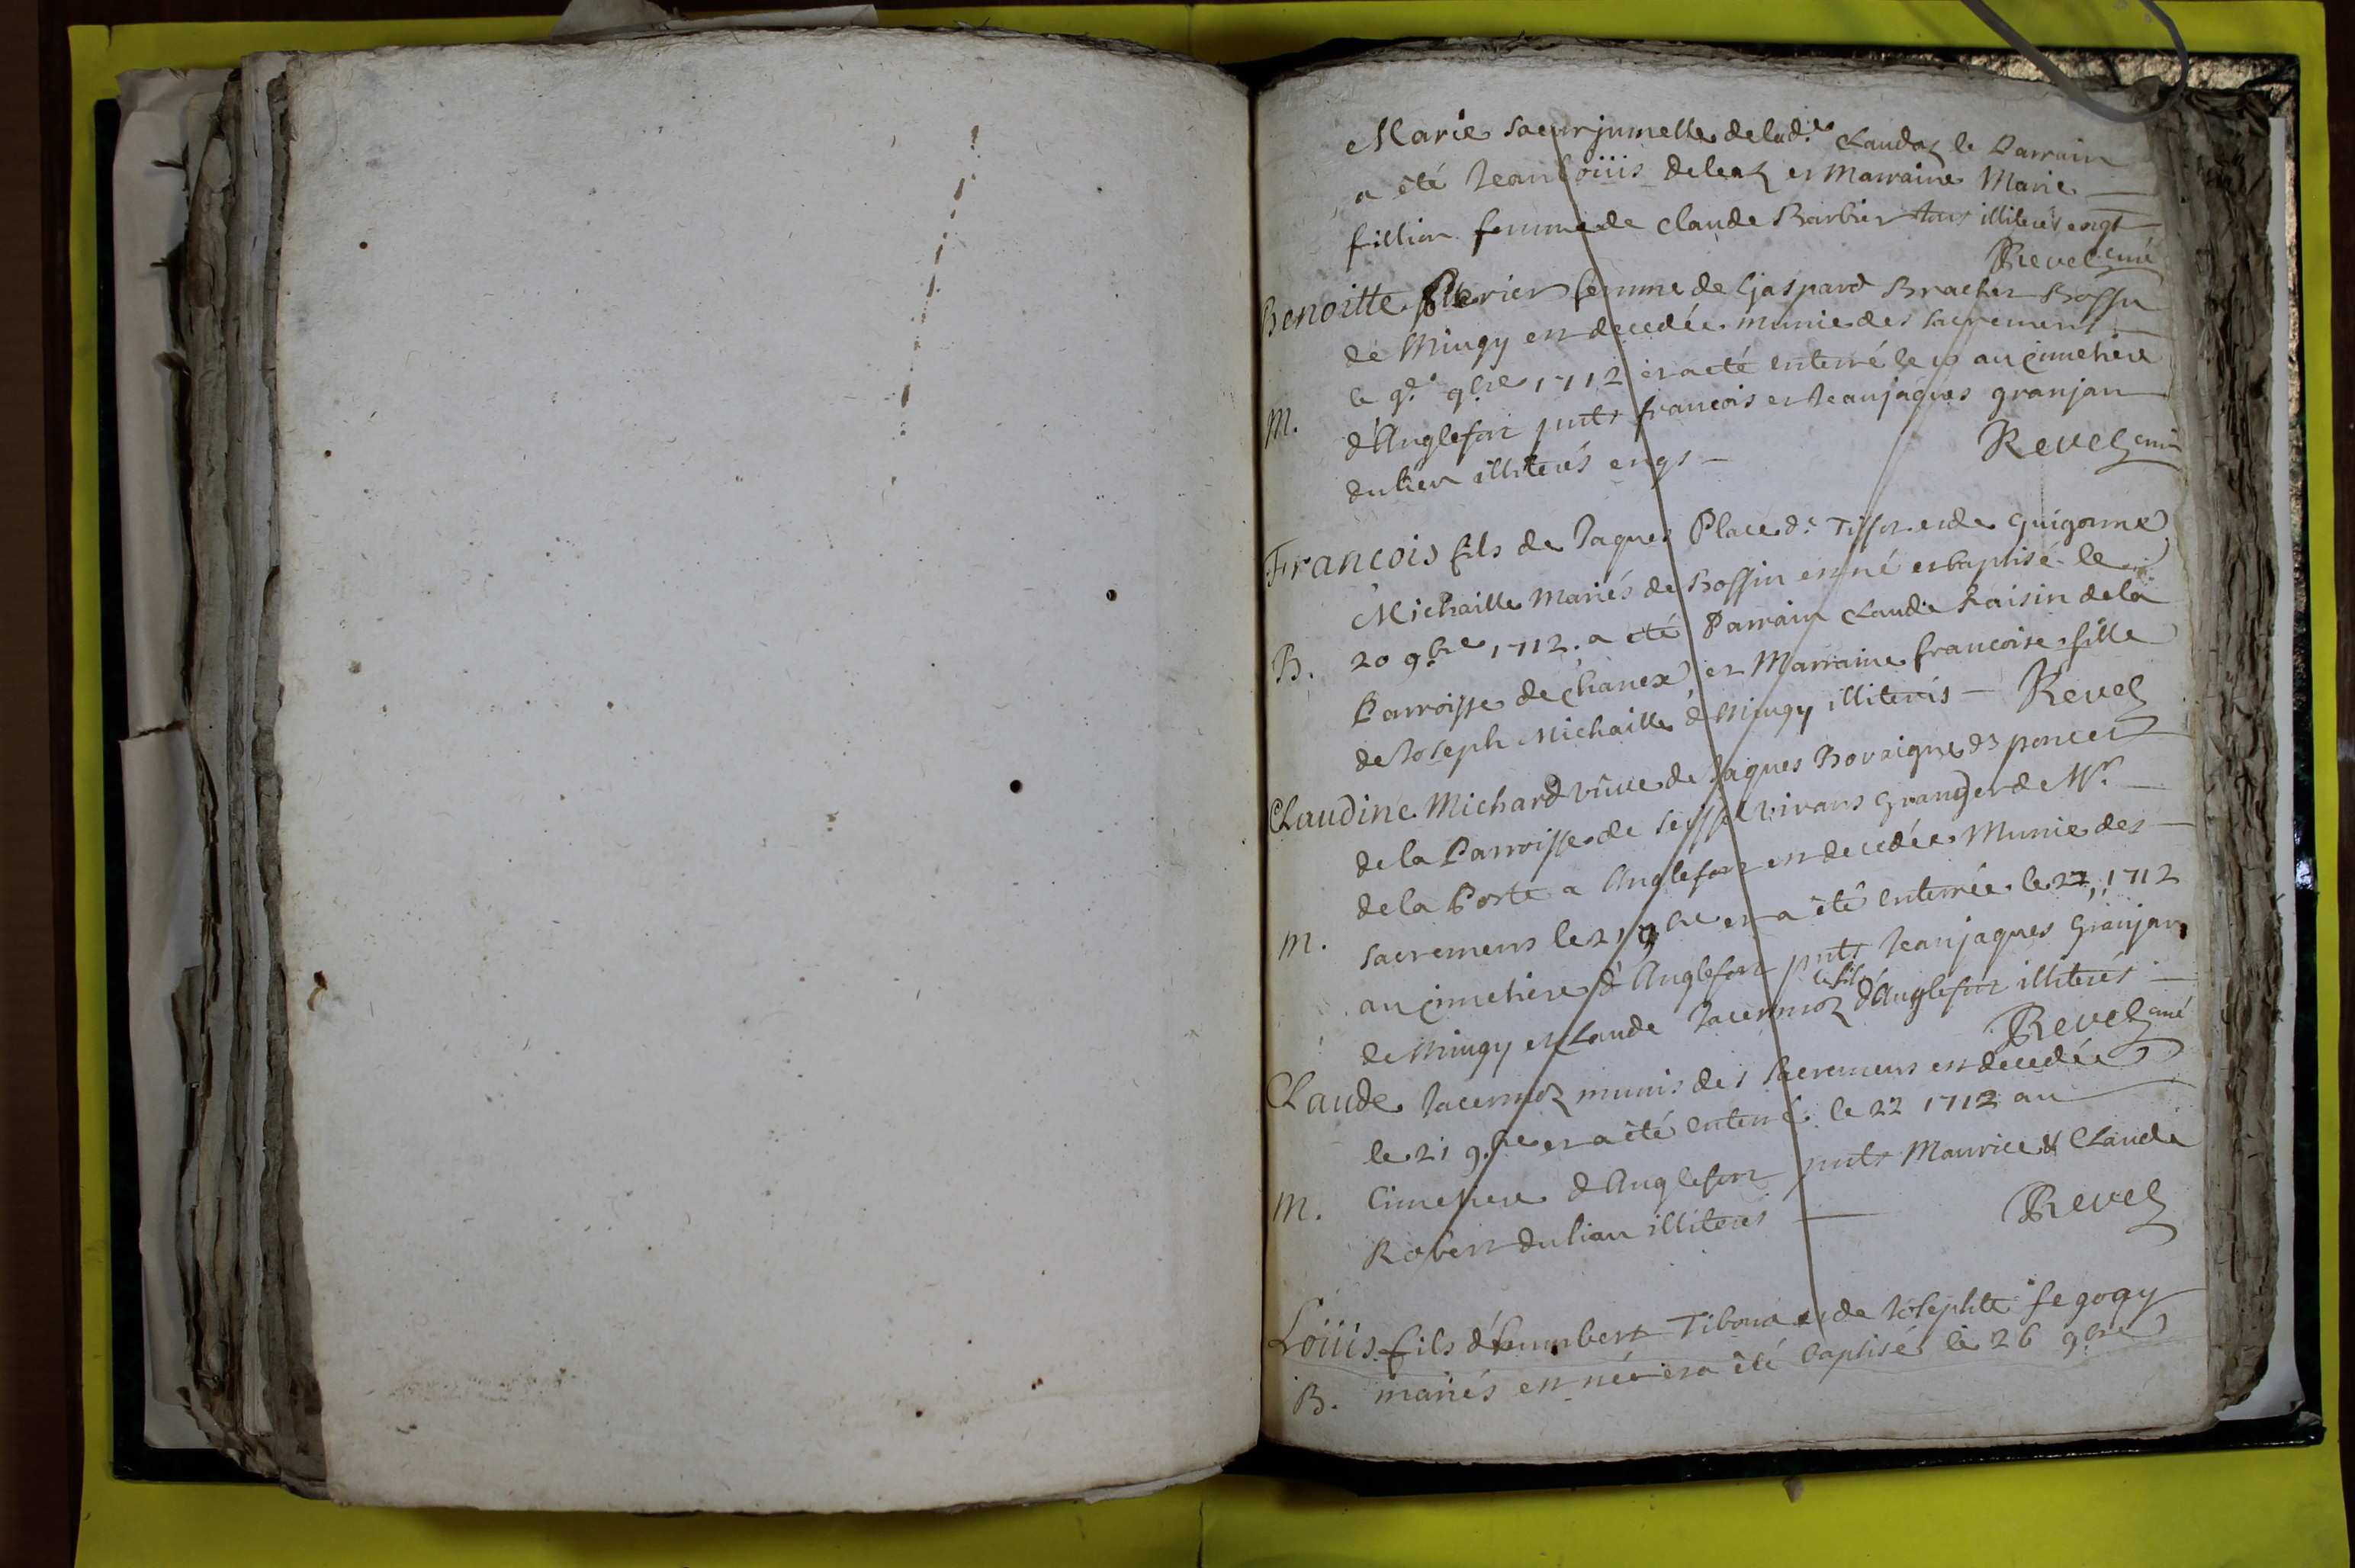 Marie soeur jumelle de lad.e Claudaz le Parrain
a été Jean Loüis deleaz et Marraine Marie
fillion femme de Claude Barbier tous illiterés enqt
Revel curé
Benoitte femme de Gaspard Brachet Bossu
de Mingy est decedée munie des sacremens
le 9.e 9bre 1712 et a eté enterré le 10 au çimetiere
M.
d'Anglefort pnts francois et Jeanjaques granjan
du lieu illiterés enqs
Revel curé
Francois fils de Jaques Place d.t Tissot et de Guigonne
Michaille Mariés de Bossin est né et baptisé le
B. 20 9bre 1712. a eté Parrain Claude Raisin de la
Parroisse de Chanex et Marraine francoise fille
de Joseph Michaille de Mingy illiterés Revel
Claudine Michard veuve de Jaques
de la Parroisse de Seissel vivans granger de Mr.
de la Porte a Anglefort est decedée Munie des
M. sacremens le 21 9bre et a été enterrée le 22, 1712
au çimetiere d'Anglefort pnts Jeanjaques Granjan
le fils
de Mingy et Claude Jacermoz d'Anglefort illiterés
Revel curé
Claude Jacermoz munis des sacremens est decedée
le 21 9bre et a été enterré le 22 1712 au
M. Cimetiere d'Anglefort pnts Maurice & Claude
Robert du lieu illiteres
Revel
Loüis fils d'humbert et de Josephte segogy
B. mariés est né et a été baptisé le 26 9bre